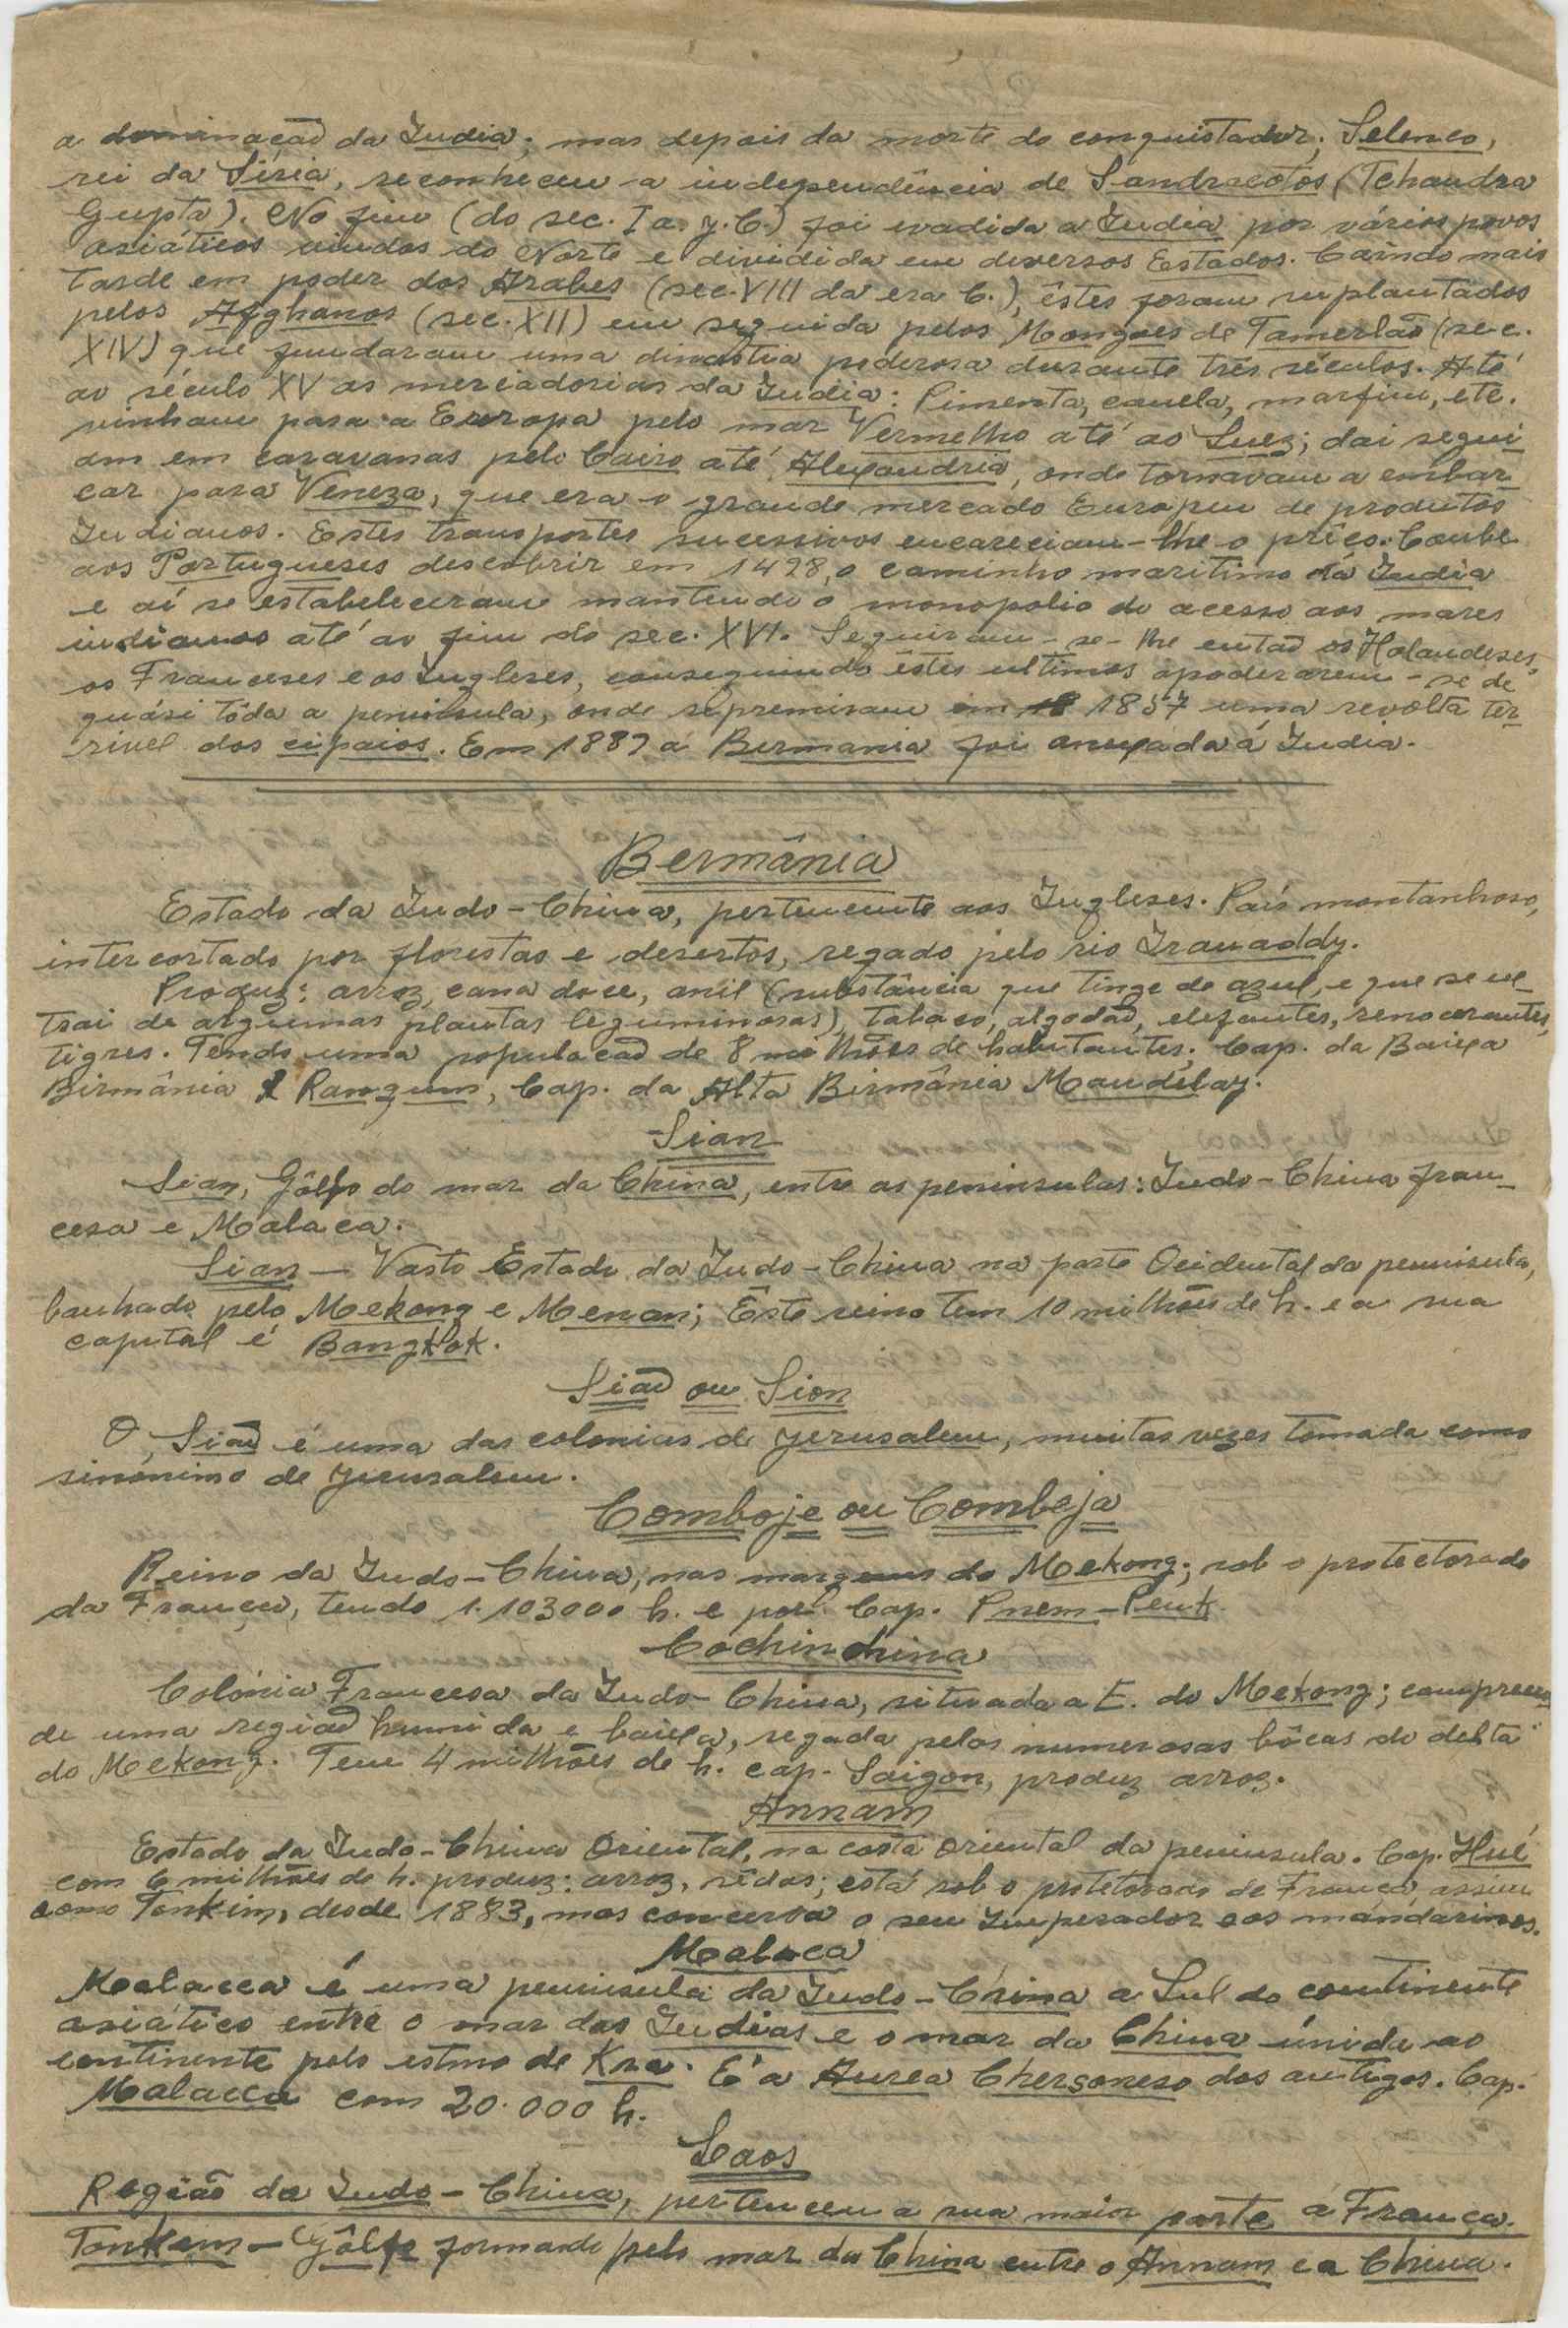 a dominação da India; mas depois da morte do conquistador; Selenco,
rei da Síria, reconheceu-a independência de Sandracotos (Tchandra
Gupta). No fim (do sec. I a. J. C.) foi evadida a India por vários povos
asiáticos vindos do Norte e dividida em diversos Estados. Caindo mais
tarde em poder dos Arabes (sec. VIII da era C.), êstes foram suplantados
pelos Afghanos (sec. XII) em seguida pelos Mongoes de Tamerlão (sec.
XIV) que fundaram uma dinastia poderosa durante três séculos. Até
ao século XV as merciadorias da India: Pimenta, canela, marfim, etc.
vinham para a Europa pelo mar Vermelho até ao Suez; dai segui
am em caravanas pelo Cairo até Alexandria, onde tornavam a embar
car para Veneza, que era o grande mercado Europeu de produtos
Indianos. Estes transportes sucessivos encareciam-lhe o prêço. Coube
aos Portugueses descobrir em 1498, o caminho maritimo da India
e aí se estabeleceram mantendo o monopolio do acesso aos mares
indianos até ao fim do sec. XVI. Seguiram-se-lhe então os Holandeses,
os Franceses e os Ingleses, conseguindo êstes ultimos apoderarem-se de
quási tôda a peninsula, onde repremiram em 1857 uma revolta ter_
rivel dos cipaios. Em 1887 a Birmania foi anexada á India.
Bermânia
Estado da Indo-China, pertencente aos Ingleses. País montanhoso,
intercortado por florestas e desertos, regado pelo rio Irauaddy.
Produz: arroz, cana doce, anil (substância que tinge de azul, e que se ex_
trai de algumas plantas leguminosas), tabaco, algodão, elefantes, renocerantes,
tigres. Tendo uma população de 8 milhões de habitantes. Cap. da Baixa
Birmânia Rangum, Cap. da Alta Birmânia Mandelay.
Sian
Sian, Gôlfo do mar da China, entre as peninsulas: Indo-China fran_
cesa e Malaca.
Sian — Vasto Estado da Indo-China na parte Ocidental da peninsula,
banhado pelo Mekong e Menan; Êste reino tem 10 milhões de h. e a sua
capital é Bangkok.
Sião ou Sion
O Sião é uma das colonias de Jerusalem, muitas vezes tomada como
sinonimo de Jerusalem.
Comboje ou Combeja
Reino da Indo-China, nas margens do Mekong; sob o protectorado
da França, tendo 1.103000 h. e por Cap. Pnem-Penk
Cochinchina
Colónia Francesa da Indo-China, situada a E. do Mekong; compreen
de uma região humida e baixa, regada pelas numerosas bôcas do delta
do Mekong. Tem 4 milhões de h. cap. Saigon, produz arroz.
Annam
Estado da Indo-China Oriental, na costa oriental da peninsula. Cap. Hué
com 6 milhões de h. produz: arroz, sêdas; está sob o protetorado de França, assim
como Tonkim, desde 1883, mas concerva o seu Imperador e os mandarinos.
Malaca
Malacca é uma peninsula da Indo-China a Sul do continente
asiático entre o mar das Indias e o mar da China únida ao
continente pelo estmo de Kra. E' a Aurea Chersoneso dos antigos. Cap.
Malacca com 20.000 h.
Laos
Região da Indo-China, pertenceu a sua maior parte á França.
Tonkem — Gôlfo formado pelo mar da China entre o Annam e a China.